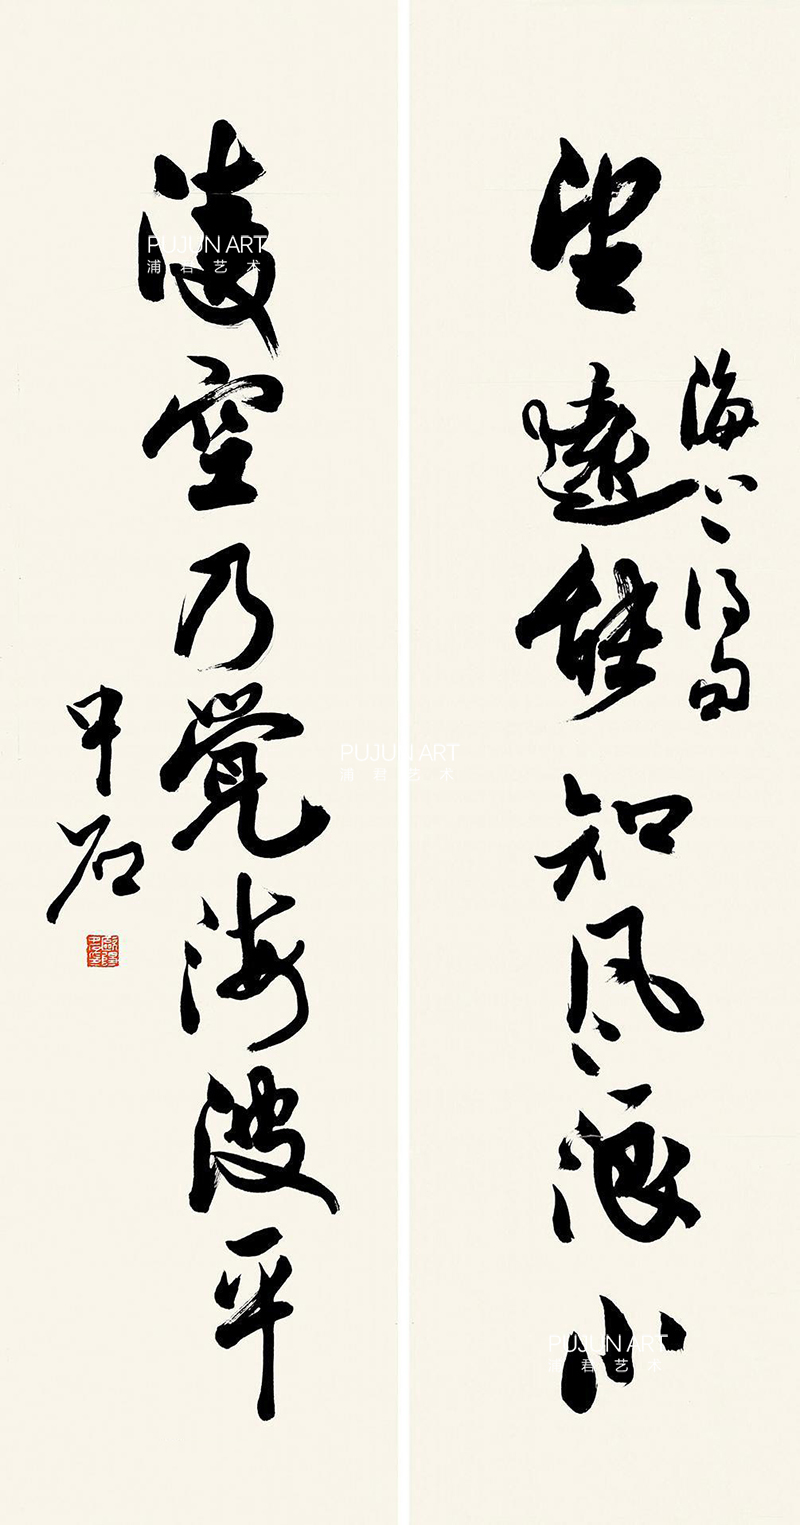 海上得句
望遠能知风浪小
淩空乃覺海波平
中石
PUJUN ART
浦君艺术
PUJUN ART
浦君艺术
PUJUN ART
浦君艺术